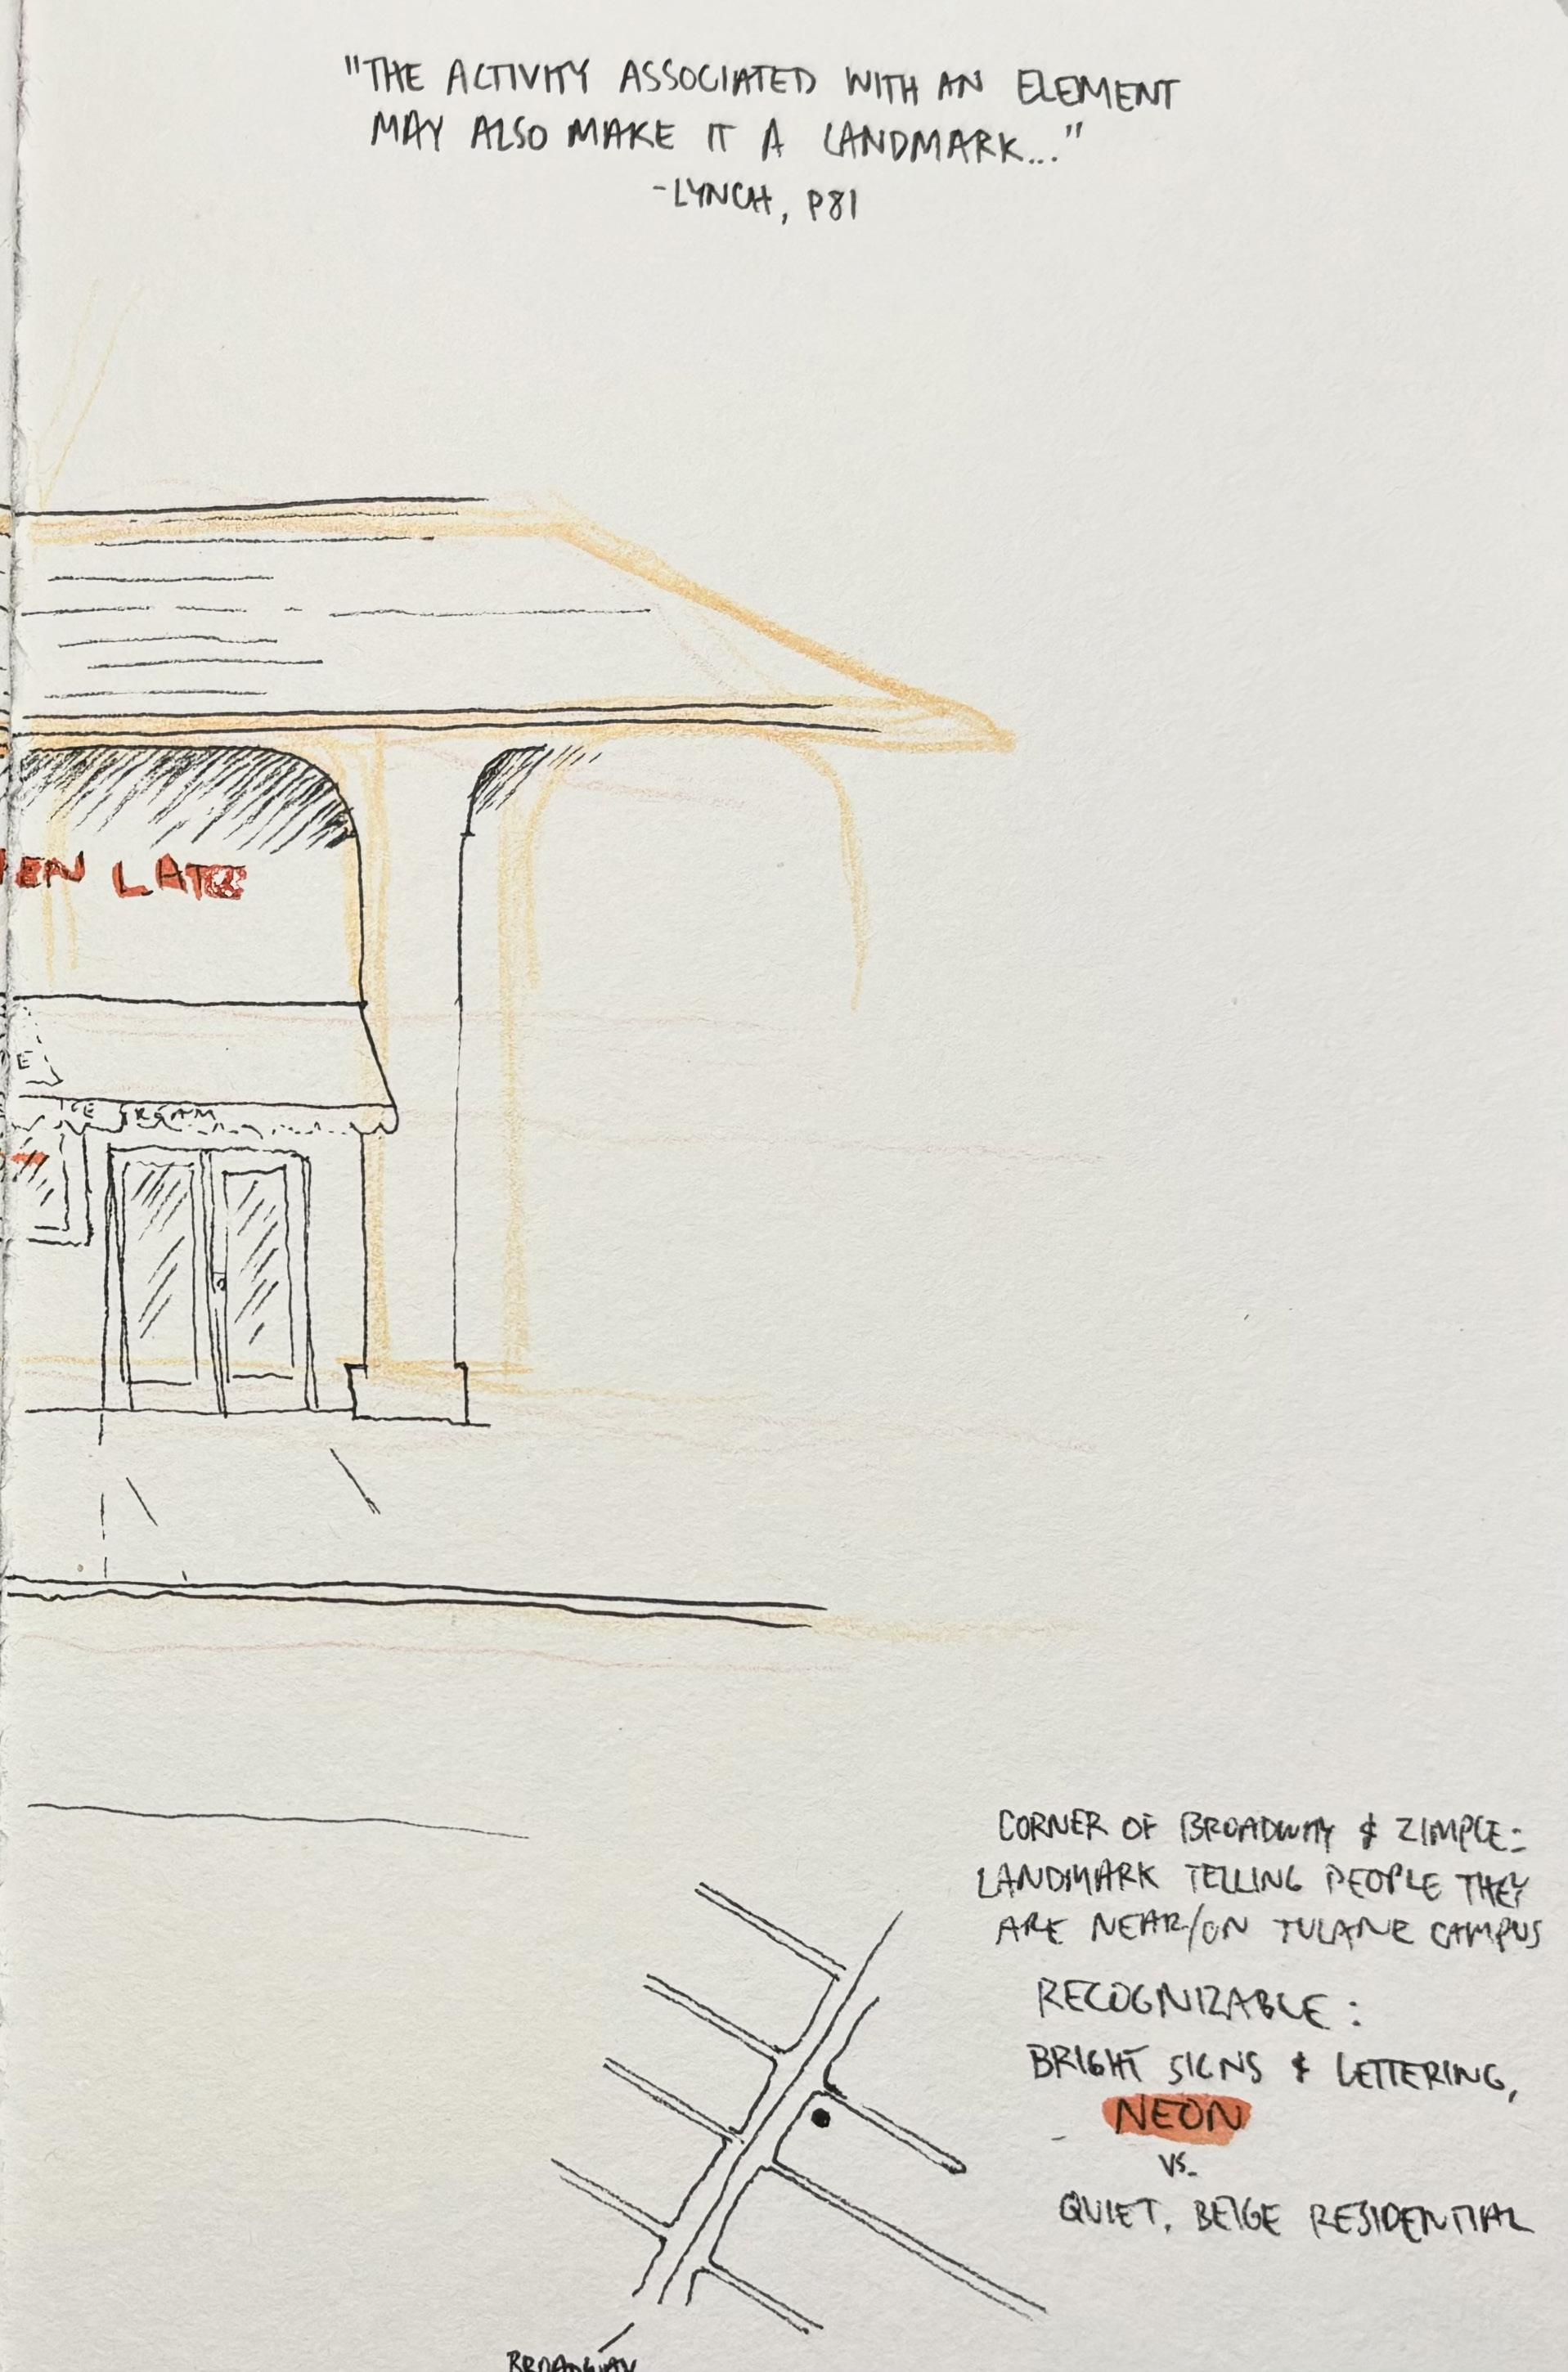 "THE ACTIVITY ASSOCIATED WITH AN ELEMENT
MAY ALSO MAKE IT A LANDMARK..."
-LYNCH, P81
EN LATE
E
ICE CREAM
CORNER OF BROADWAY & ZIMPLE:
LANDMARK TELLING PEOPLE THEY
ARE NEAR/ON TULANE CAMPUS
RECOGNIZABLE:
BRIGHT SIGNS & LETTERING,
NEON
VS.
QUIET, BEIGE RESIDENTIAL
BROADWAY